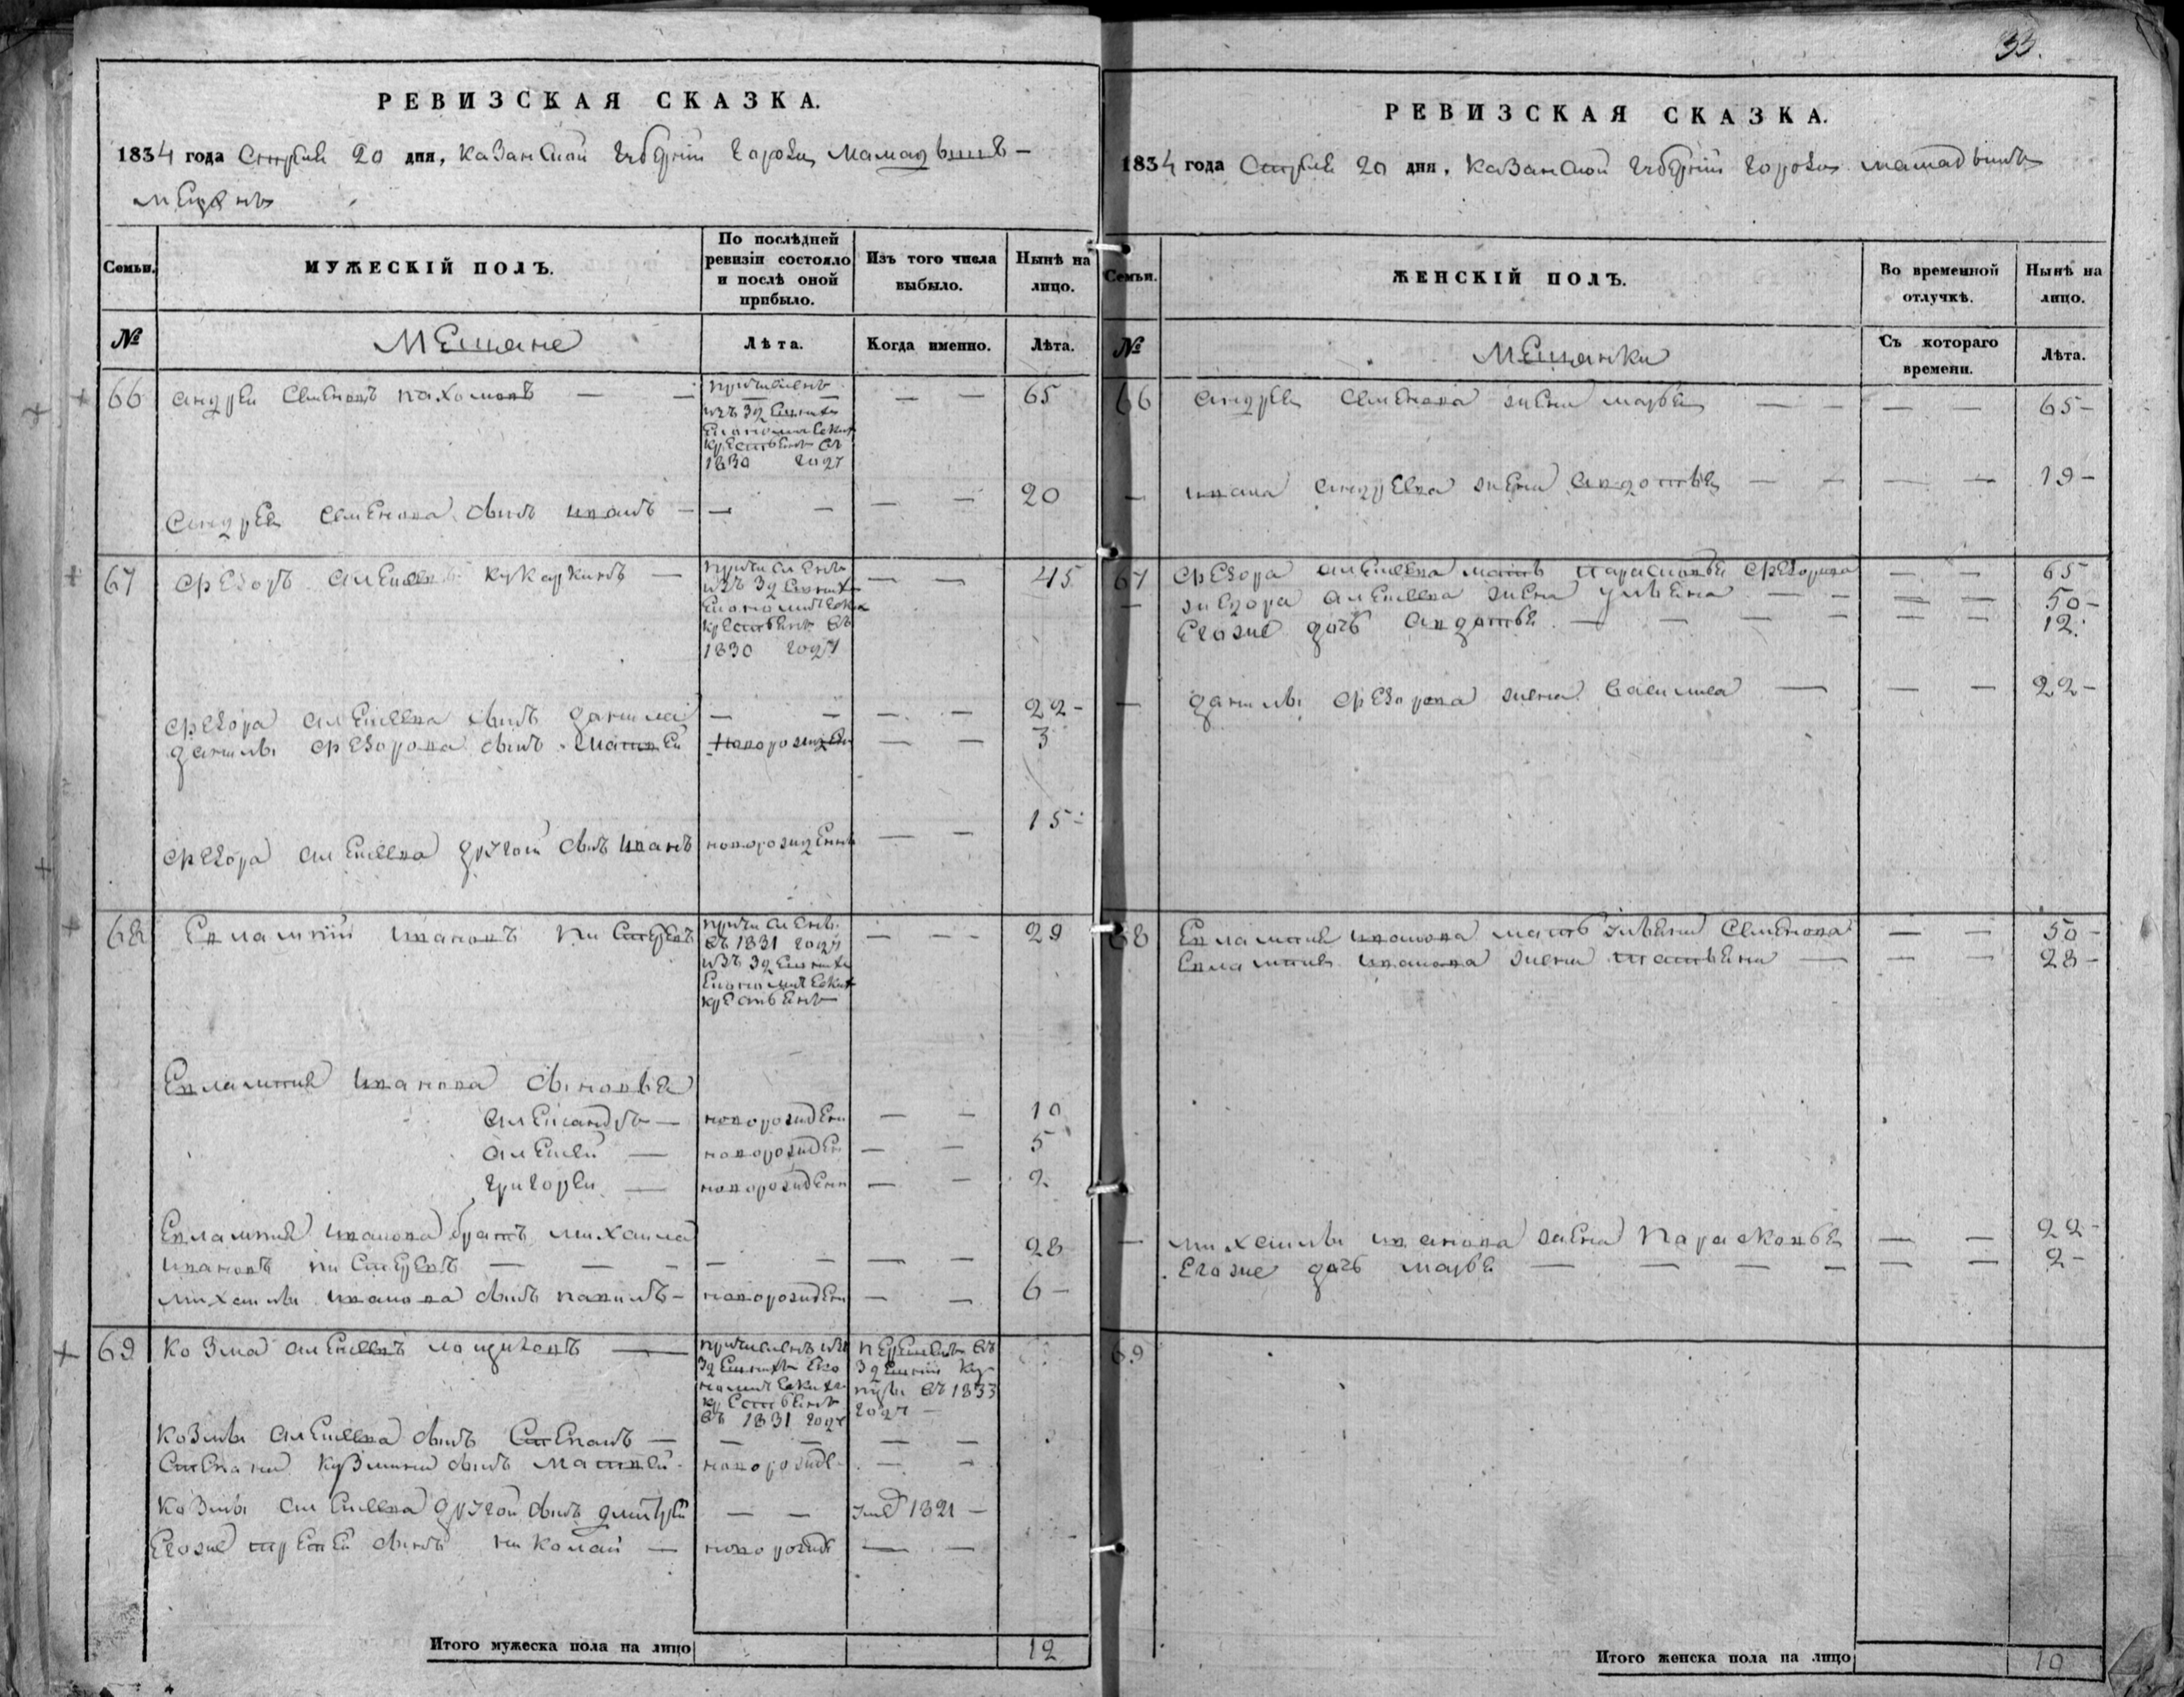 33.
РЕВИЗСКАЯ СКАЗКА.
1834 года Апреля 20 дня, Казанской губернии города Мамадыша
мещанъ
Семьи.
МУЖЕСКІЙ ПОЛЪ.
По послѣдней ревизіи состояло и послѣ оной прибыло.
Изъ того числа выбыло.
Нынѣ на лицо.
№
Мещане
Лѣта.
Когда именно.
Лѣта.
66 Андреи Семеновъ Пахомовъ — причисленъ — — 65
изъ здешнихъ
економическихъ
крестьянъ въ
1830 году
Андрея Семенова сынъ Иванъ — — — — — 20
67 Федоръ Алексеевъ Кукаркинъ — причисленъ — — 45
изъ здешнихъ
економическихъ
крестьянъ въ
1830 году
Федора Алексеева сынъ Данила — — — — 22 -
Данилы Федорова сынъ Матвей новорожден — — 3
Федора Алексеева другой сынъ Иванъ новорожденъ — — 15 -
68 Евлампий Ивановъ причисленъ — — — 29
въ 1831 году
изъ здешнихъ
економическихъ
крестьянъ
Евлампия Иванова сыновья
Александръ — новорожден — — 10
Алексей — новорожден — — 5
Григореи — новорожден — — 2
Евлампия Иванова братъ Михаила
Ивановъ — — — — — — — 28
Михаилы Иванова сынъ Павилъ — новорожден — — 6 —
69 Козма Алексеевъ — причисленъ изъ перешолъ въ
здешнихъ еко здешнии ку
номическихъ пцы въ 1833
крестьянъ году —
въ 1831 году
Козмы Алексеева сынъ Степанъ — — — — —
Степана Кузмина сынъ Матвей новорожде — —
Козмы Алексеева другой сынъ Дмитрей — — 1821 —
Егоже третей сынъ Николай — новорожде — —
Итого мужеска пола на лицо 12
РЕВИЗСКАЯ СКАЗКА.
1834 года Апреля 20 дня, Казанской губернии города Мамадыша
Семьи.
ЖЕНСКІЙ ПОЛЪ.
Во временной отлучкѣ.
Нынѣ на лицо.
№
Мещанки
Съ котораго времени.
Лѣта.
66 Андрея Семенова жена Марья — — — — 65 —
— Ивана Андреева жена Авдотья — — — — 19 —
67 Федора Алексеева мать Парасковья Федорова — — 65
— Федора Алексеева жена Ульяна — — — — 50 —
Егоже дочь Авдотья — — — — — — 12.
— Данилы Федорова жена Василиса — — — 22 —
68 Евлампия Иванова мать Ульяна Семенова — — 50 —
Евлампия Иванова жена Татьяна — — — 28 —
— Михаилы Иванова жена Парасковья — — 22 -
Егоже дочь Марья — — — — — — 2 —
69
Итого женска пола на лицо 10